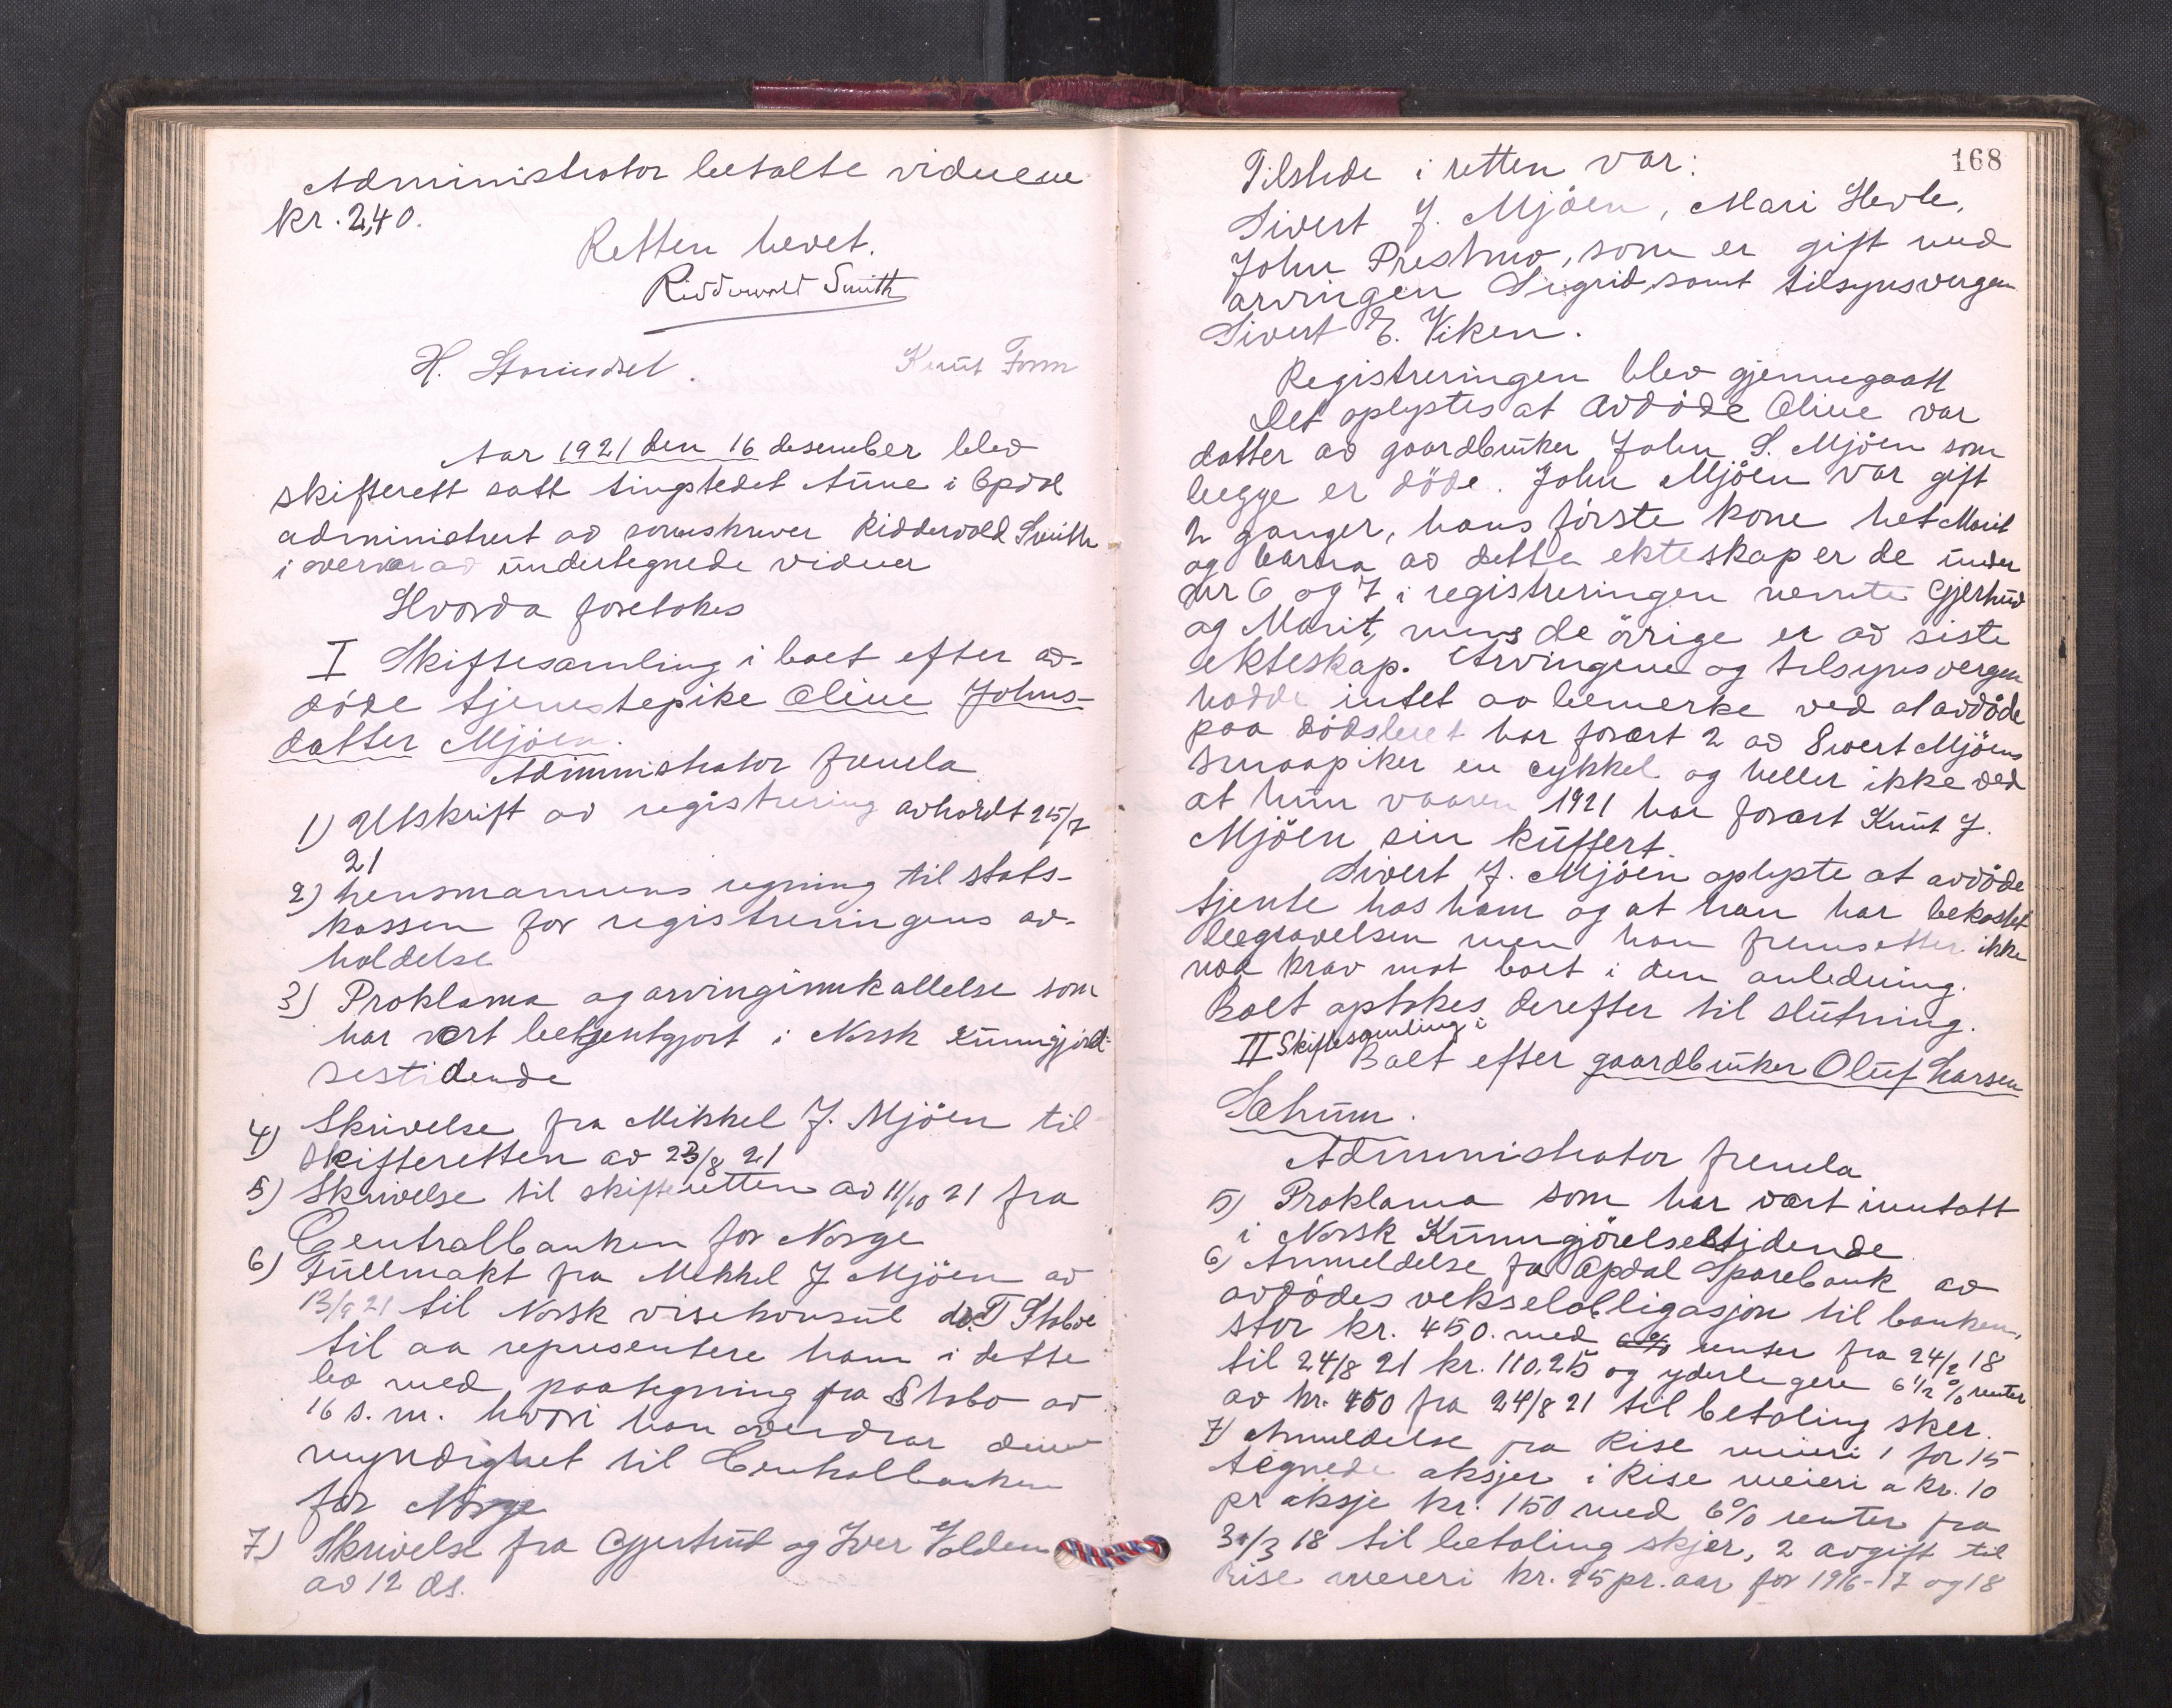 Administrator betalte vidnene
kr. 2,40.
Retten hevet.
Ridderwold Smith
H. Størusdal. Knut Form
Aar 1921 den 16 desember blev
skifterett satt tingstedet Aune i Opdal
administrert av sorenskriver Ridderwold Smith
i overvær av undertegnede vidner
Hvorda foretokes
I Skiftesamling i boet efter av-
døde tjenestepike Oline Johns-
datter Mjöen.
Administrator fremla
1) Utskrift av registrering avholdt 25/7
21
2) Lensmannens regning til stats-
kassen for registreringens av-
holdelse
3) Proklama og arvinginnkallelse som
har vært bekjentgjort i Norsk Kunngjörel-
sestidende
4) Skrivelse fra Mikkel J. Mjöen til
skifteretten av 23/8 21
5) Skrivelse til skifteretten av 11/10 21 fra
Centralbanken for Norge
6) Fullmakt fra Mikkel J Mjöen av
13/9 21 til Norsk visekonsul dr. T Stabo
til aa representere ham i dette
bo med paategning fra Stabo av
16 s. m. hvori han overdrar denne
myndighet til Centralbanken
for Norge
7) Skrivelse fra Gjertrud og Iver Volden
av 12 ds.
168
Tilstede i retten var:
Sivert J. Mjöen, Mari Hevle,
John Prestmo, som er gift med
arvingen Sigrid, samt tilsynsvergen
Sivert E. Viken.
Registreringen blev gjennegaatt
Det oplystes at avdöde Oline var
datter av gaardbruker John S. Mjöen som
begge er döde. John Mjöen var gift
2 ganger, hans förste kone het Marit
og barna av dette ekteskap er de under
nr 6 og 7 i registreringen nevnte Gjertrud
og Marit, mens de övrige er av siste
ekteskap. Arvingene og tilsynsvergen
hadde intet aa bemerke ved at avdöde
paa dödsleiet har foræret 2 av Sivert Mjöens
smaapiker en cykkel og heller ikke ved
at hun vaaren 1921 har foræret Knut J.
Mjöen sin kuffert.
Sivert J. Mjöen oplyste at avdöde
tjente hos ham og at han har bekostet
begravelsen men han fremsetter ikke
noe krav mot boet i den anledning.
Boet optokes derefter til slutning.
II Skiftesamling i
Boet efter gaardbruker Oluf Larsen
Sæhum.
Administrator fremla
5) Proklama som har vært inntatt
i Norsk Kunngjörelsestidende
6) Anmeldelse fra Opdal Sparebank av
avdödes vekselobligasjon til banken,
stor kr. 450. med 6% renter fra 24/2 18
til 24/8 21 kr. 110.25 og yderligere 6 1/2 % renter
av kr. 450 fra 24/8 21 til betaling sker.
7) Anmeldelse fra Rise meieri 1 for 15
tegnede aksjer i Rise meieri a kr. 10
pr aksje kr. 150 med 6% renter fra
31/3 18 til betaling skjer, 2 avgift til
Rise meieri kr. 25 pr. aar for 1916-17 og 18